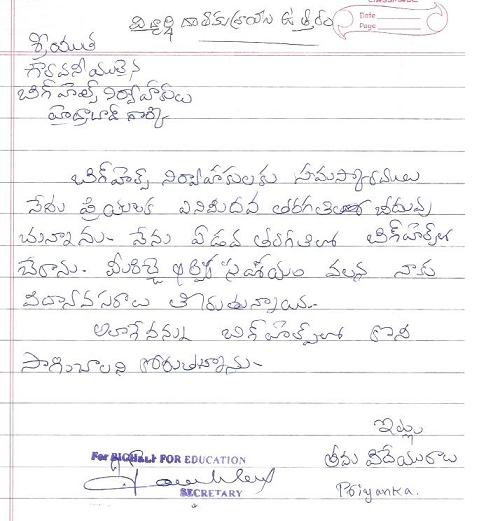 విద్యార్థి దాతకు రాయు ఉత్తరం
CLASSMATE
Date
Page
శ్రీయుత
గౌరవనీయులైన
బిగ్ హెల్ప్ నిర్వాహకులు
హైద్రాబాద్ గార్కి
బిగ్‌హెల్ప్ నిర్వాహకులకు నమస్కారములు
నేను ప్రియాంక ఎనిమిదవ తరగతిలో చదువు
చున్నాను. నేను ఏడవ తరగతిలో బిగ్‌హెల్ప్‌లో
చేరాను. మీరిచ్చె ఆర్థిక సహాయం వలన నాకు
విద్యావసరాలు తీరుతున్నాయి.
అలాగే నన్ను బిగ్ హెల్ప్‌లో కొన
సాగించాలని కోరుతున్నాను-
ఇట్లు
తమ విదేయురాలు
Priyanka.
For BIGHELP FOR EDUCATION
SECRETARY